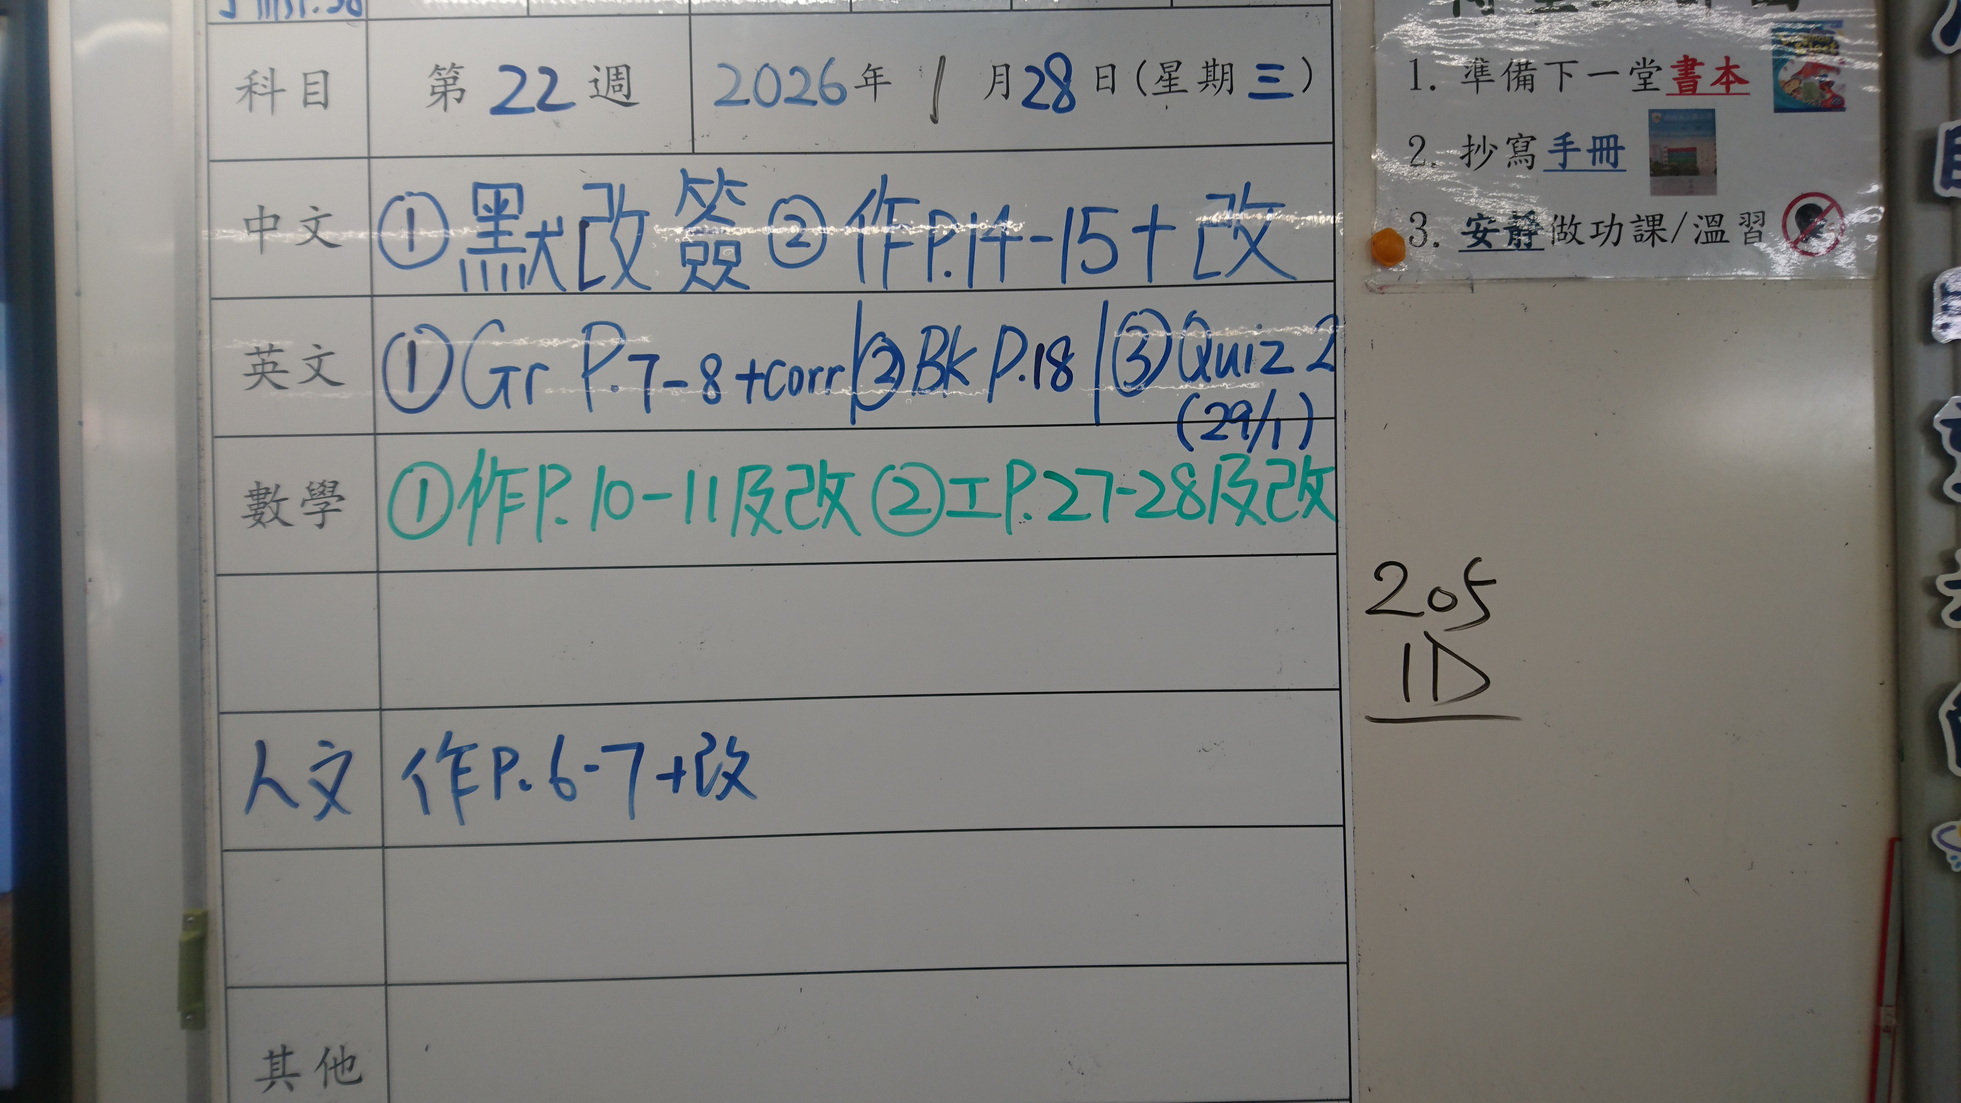 科目 第 22 週 2026 年 1 月 28 日 (星期 三)
中文 ① 默改簽 ② 作P.14-15+改
英文 ① Gr P.7-8+corr | ② Bk P.18 | ③ Quiz 2
(29/1)
數學 ① 作P.10-11及改 ② 工P.27-28及改
人文 作P.6-7+改
其他
1. 準備下一堂書本
2. 抄寫手冊
3. 安靜做功課/溫習
205
1D